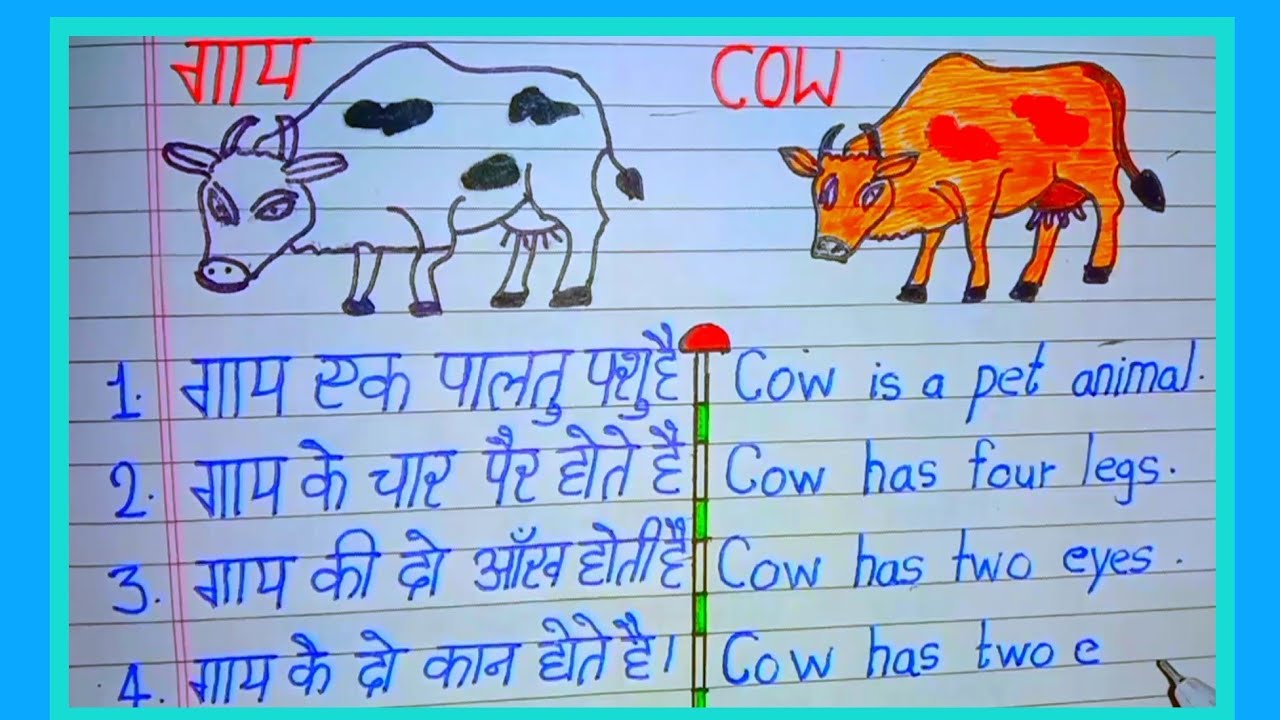 गाय COW
1. गाय एक पालतु पशु है Cow is a pet animal.
2. गाय के चार पैर होते है Cow has four legs.
3. गाय की दो आँख होती है Cow has two eyes.
4. गाय के दो कान होते है। Cow has two e